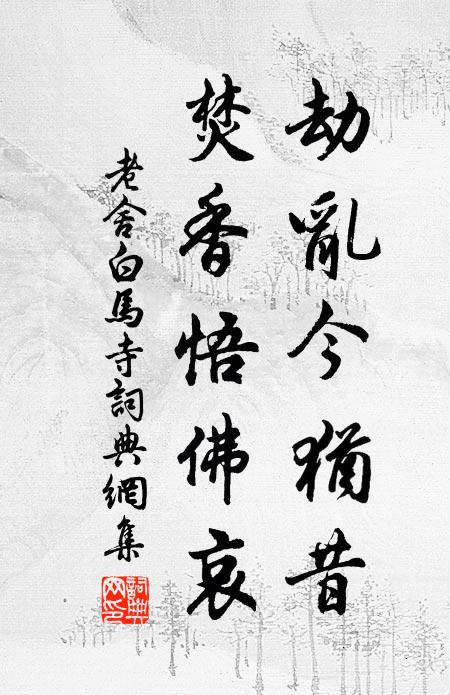 劫亂今猶昔
焚香悟佛哀
老舍白馬寺詞典網集
詞典网印